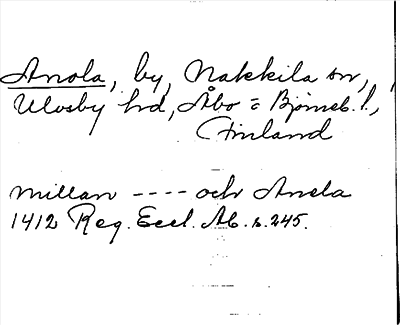 Anola, by, Nakkila sn,
Ulvsby hd, Åbo = Björneb. l.,
Finland
millan ---- och Anola
1412 Reg. Eccl. Ab. s. 245.